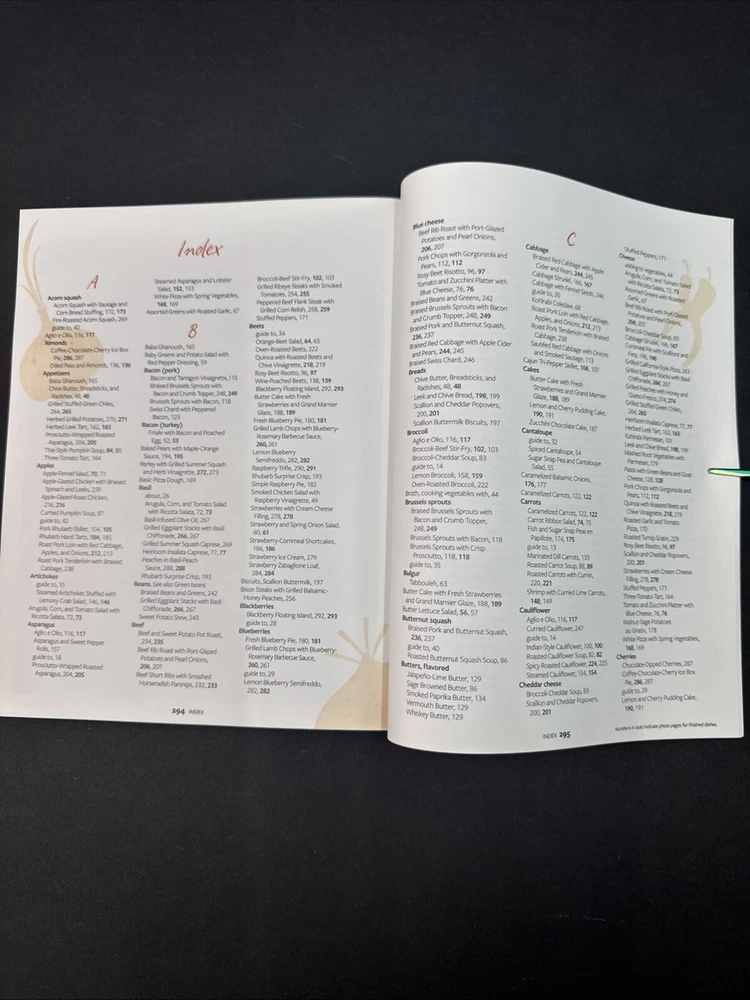 Index
A
Acorn squash
Acorn Squash with Sausage and
Corn Bread Stuffing, 172, 173
Fire-Roasted Acorn Squash, 269
guide to, 40
Aglio e Olio, 116, 117
Almonds
Coffee-Chocolate-Cherry Ice Box
Pie, 286, 287
Dilled Peas and Almonds, 136, 136
Appetizers
Baba Ghanoush, 165
Chive Butter, Breadsticks, and
Radishes, 48, 48
Grilled Stuffed Green Chiles,
264, 265
Herbed Grilled Potatoes, 270, 271
Herbed Leek Tart, 162, 163
Prosciutto-Wrapped Roasted
Asparagus, 204, 205
Thai-Style Pumpkin Soup, 84, 85
Three-Tomato Tart, 164
Apples
Apple-Fennel Salad, 70, 71
Apple-Glazed Chicken with Braised
Spinach and Leeks, 239
Apple-Glazed Roast Chicken,
216, 216
Curried Pumpkin Soup, 87
guide to, 42
Pork Rhubarb Skillet, 104, 105
Rhubarb Hand Tarts, 184, 185
Roast Pork Loin with Red Cabbage,
Apples, and Onions, 212, 213
Roast Pork Tenderloin with Braised
Cabbage, 238
Artichokes
guide to, 15
Steamed Artichokes Stuffed with
Lemony Crab Salad, 146, 146
Arugula, Corn, and Tomato Salad with
Ricotta Salata, 72, 73
Asparagus
Aglio e Olio, 116, 117
Asparagus and Sweet Pepper
Rolls, 157
guide to, 18
Prosciutto-Wrapped Roasted
Asparagus, 204, 205
Steamed Asparagus and Lobster
Salad, 152, 153
White Pizza with Spring Vegetables,
168, 169
Assorted Greens with Roasted Garlic, 67
B
Baba Ghanoush, 165
Baby Greens and Potato Salad with
Red Pepper Dressing, 59
Bacon (pork)
Bacon and Tarragon Vinaigrette, 115
Braised Brussels Sprouts with
Bacon and Crumb Topper, 248, 249
Brussels Sprouts with Bacon, 118
Swiss Chard with Peppered
Bacon, 123
Bacon (turkey)
Frisée with Bacon and Poached
Egg, 52, 53
Baked Pears with Maple-Orange
Sauce, 194, 195
Barley with Grilled Summer Squash
and Herb Vinaigrette, 272, 273
Basic Pizza Dough, 169
Basil
about, 26
Arugula, Corn, and Tomato Salad
with Ricotta Salata, 72, 73
Basil-Infused Olive Oil, 267
Grilled Eggplant Stacks with Basil
Chiffonade, 266, 267
Grilled Summer Squash Caprese, 269
Heirloom Insalata Caprese, 77, 77
Peaches in Basil-Peach
Sauce, 288, 288
Rhubarb Surprise Crisp, 193
Beans. See also Green beans
Braised Beans and Greens, 242
Grilled Eggplant Stacks with Basil
Chiffonade, 266, 267
Sweet Potato Stew, 243
Beef
Beef and Sweet Potato Pot Roast,
234, 235
Beef Rib Roast with Port-Glazed
Potatoes and Pearl Onions,
206, 207
Beef Short Ribs with Smashed
Horseradish Parsnips, 232, 233
Broccoli-Beef Stir-Fry, 102, 103
Grilled Ribeye Steaks with Smoked
Tomatoes, 254, 255
Peppered Beef Flank Steak with
Grilled Corn Relish, 258, 259
Stuffed Peppers, 171
Beets
guide to, 34
Orange-Beet Salad, 64, 65
Oven-Roasted Beets, 222
Quinoa with Roasted Beets and
Chive Vinaigrette, 218, 219
Rosy Beet Risotto, 96, 97
Wine-Poached Beets, 138, 139
Blackberry Floating Island, 292, 293
Butter Cake with Fresh
Strawberries and Grand Marnier
Glaze, 188, 189
Fresh Blueberry Pie, 180, 181
Grilled Lamb Chops with Blueberry-
Rosemary Barbecue Sauce,
260, 261
Lemon Blueberry
Semifreddo, 282, 282
Raspberry Trifle, 290, 291
Rhubarb Surprise Crisp, 193
Simple Raspberry Pie, 182
Smoked Chicken Salad with
Raspberry Vinaigrette, 49
Strawberries with Cream Cheese
Filling, 278, 278
Strawberry and Spring Onion Salad,
60, 61
Strawberry-Cornmeal Shortcakes,
186, 186
Strawberry Ice Cream, 279
Strawberry Zabaglione Loaf,
284, 284
Biscuits, Scallion Buttermilk, 197
Bison Steaks with Grilled Balsamic-
Honey Peaches, 256
Blackberries
Blackberry Floating Island, 292, 293
guide to, 28
Blueberries
Fresh Blueberry Pie, 180, 181
Grilled Lamb Chops with Blueberry-
Rosemary Barbecue Sauce,
260, 261
guide to, 29
Lemon Blueberry Semifreddo,
282, 282
294 INDEX
Blue cheese
Beef Rib Roast with Port-Glazed
Potatoes and Pearl Onions,
206, 207
Pork Chops with Gorgonzola and
Pears, 112, 112
Rosy Beet Risotto, 96, 97
Tomato and Zucchini Platter with
Blue Cheese, 76, 76
Braised Beans and Greens, 242
Braised Brussels Sprouts with Bacon
and Crumb Topper, 248, 249
Braised Pork and Butternut Squash,
236, 237
Braised Red Cabbage with Apple Cider
and Pears, 244, 245
Braised Swiss Chard, 246
Breads
Chive Butter, Breadsticks, and
Radishes, 48, 48
Leek and Chive Bread, 198, 199
Scallion and Cheddar Popovers,
200, 201
Scallion Buttermilk Biscuits, 197
Broccoli
Aglio e Olio, 116, 117
Broccoli-Beef Stir-Fry, 102, 103
Broccoli-Cheddar Soup, 83
guide to, 14
Lemon Broccoli, 158, 159
Oven-Roasted Broccoli, 222
Broth, cooking vegetables with, 44
Brussels sprouts
Braised Brussels Sprouts with
Bacon and Crumb Topper,
248, 249
Brussels Sprouts with Bacon, 118
Brussels Sprouts with Crisp
Prosciutto, 118, 118
guide to, 35
Bulgur
Tabbouleh, 63
Butter Cake with Fresh Strawberries
and Grand Marnier Glaze, 188, 189
Butter Lettuce Salad, 56, 57
Butternut squash
Braised Pork and Butternut Squash,
236, 237
guide to, 40
Roasted Butternut Squash Soup, 86
Butters, flavored
Jalapeño-Lime Butter, 129
Sage Browned Butter, 86
Smoked Paprika Butter, 134
Vermouth Butter, 129
Whiskey Butter, 129
C
Cabbage
Braised Red Cabbage with Apple
Cider and Pears, 244, 245
Cabbage Strudel, 166, 167
Cabbage with Fennel Seeds, 246
guide to, 35
Kohlrabi Coleslaw, 68
Roast Pork Loin with Red Cabbage,
Apples, and Onions, 212, 213
Roast Pork Tenderloin with Braised
Cabbage, 238
Sautéed Red Cabbage with Onions
and Smoked Sausage, 113
Cajun Tri-Pepper Skillet, 106, 107
Cakes
Butter Cake with Fresh
Strawberries and Grand Marnier
Glaze, 188, 189
Lemon and Cherry Pudding Cake,
190, 191
Zucchini Chocolate Cake, 187
Cantaloupe
guide to, 32
Spiced Cantaloupe, 54
Sugar Snap Pea and Cantaloupe
Salad, 55
Caramelized Balsamic Onions,
176, 177
Caramelized Carrots, 122, 122
Carrots
Caramelized Carrots, 122, 122
Carrot Ribbon Salad, 74, 75
Fish and Sugar Snap Peas en
Papillote, 174, 175
guide to, 13
Marinated Dill Carrots, 133
Roasted Carrot Soup, 88, 89
Roasted Carrots with Cumin,
220, 221
Shrimp with Curried Lime Carrots,
148, 149
Cauliflower
Aglio e Olio, 116, 117
Curried Cauliflower, 247
guide to, 14
Indian-Style Cauliflower, 100, 100
Roasted Cauliflower Soup, 82, 82
Spicy Roasted Cauliflower, 224, 225
Steamed Cauliflower, 154, 154
Cheddar cheese
Broccoli-Cheddar Soup, 83
Scallion and Cheddar Popovers,
200, 201
Stuffed Peppers, 171
Cheese
adding to vegetables, 44
Arugula, Corn, and Tomato Salad
with Ricotta Salata, 72, 73
Assorted Greens with Roasted
Garlic, 67
Beef Rib Roast with Port-Glazed
Potatoes and Pearl Onions,
206, 207
Broccoli-Cheddar Soup, 83
Cabbage Strudel, 166, 167
Feta, 196, 196
Grilled California-Style Pizza, 263
Grilled Eggplant Stacks with Basil
Chiffonade, 266, 267
Grilled Peaches with Honey and
Queso Fresco, 274, 274
Grilled Stuffed Green Chiles,
264, 265
Heirloom Insalata Caprese, 77, 77
Herbed Leek Tart, 162, 163
Kohlrabi Parmesan, 101
Leek and Chive Bread, 198, 199
Mashed Root Vegetables with
Parmesan, 179
Pasta with Green Beans and Goat
Cheese, 128, 128
Pork Chops with Gorgonzola and
Pears, 112, 112
Quinoa with Roasted Beets and
Chive Vinaigrette, 218, 219
Roasted Garlic and Tomato
Pizza, 170
Roasted Turnip Gratin, 229
Rosy Beet Risotto, 96, 97
Scallion and Cheddar Popovers,
200, 201
Strawberries with Cream Cheese
Filling, 278, 278
Stuffed Peppers, 171
Three-Tomato Tart, 164
Tomato and Zucchini Platter with
Blue Cheese, 76, 76
Walnut-Sage Potatoes
au Gratin, 178
White Pizza with Spring Vegetables,
168, 169
Cherries
Chocolate-Dipped Cherries, 287
Coffee-Chocolate-Cherry Ice Box
Pie, 286, 287
guide to, 29
Lemon and Cherry Pudding Cake,
190, 191
Numbers in bold indicate photo pages for finished dishes.
INDEX 295